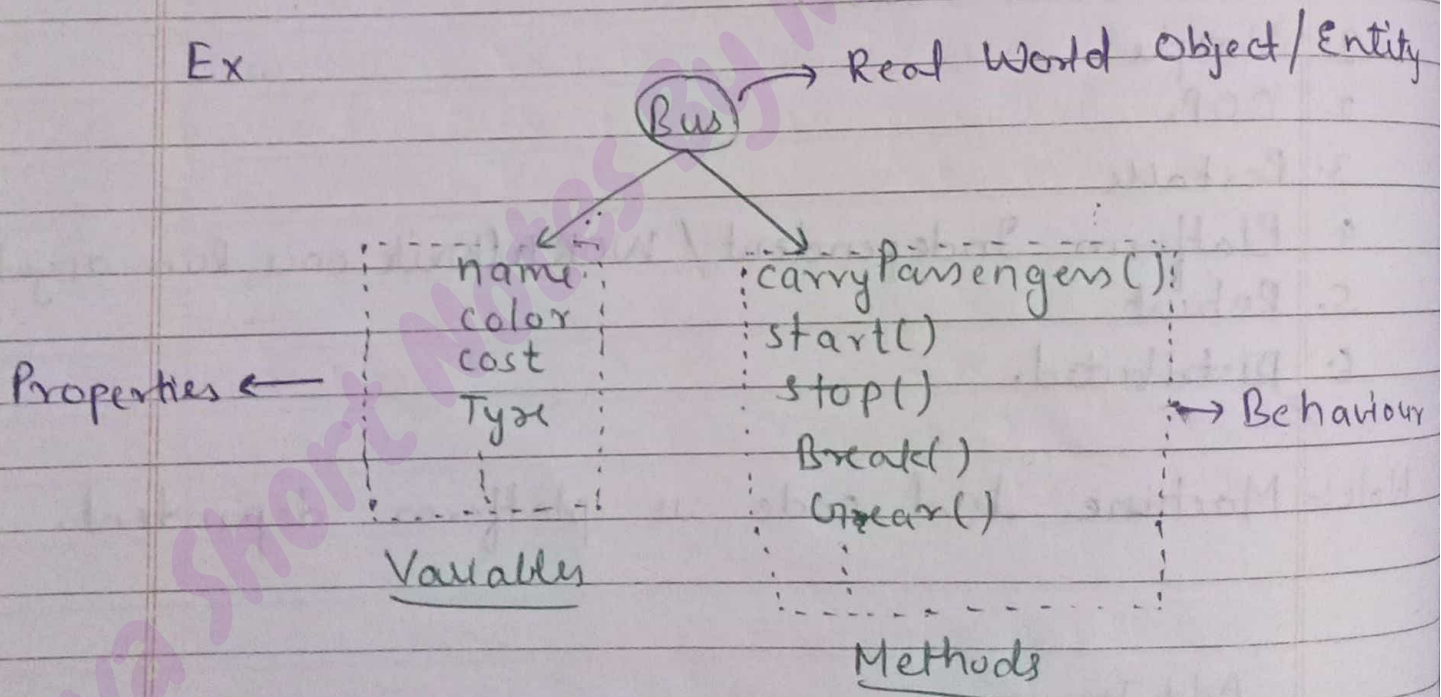 Ex
Real World Object/Entity
Bus
name
color
cost
Type
Properties
Variables
carryPassengers()
start()
stop()
Break()
Gear()
Behaviour
Methods
Short Notes By